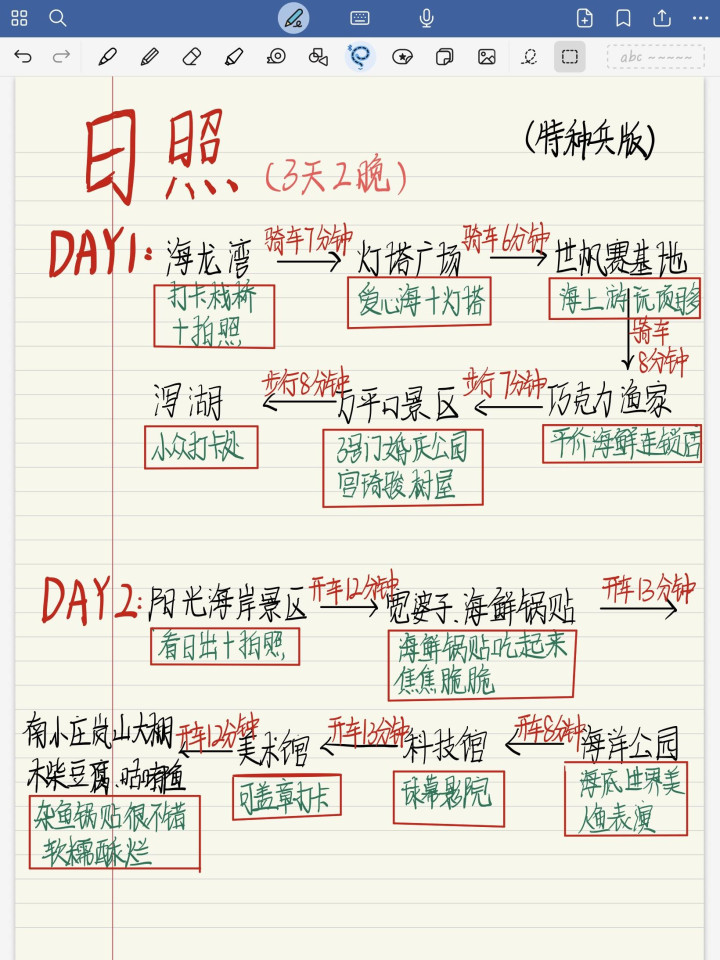 abc
日照 (3天2晚)
(特种兵版)
DAY1: 海龙湾 骑车7分钟 灯塔广场 骑车6分钟 世帆赛基地
打卡栈桥
+拍照
爱心海+灯塔
海上游玩项目多
骑车
8分钟
泻湖 步行8分钟 万平口景区 步行7分钟 巧克力渔家
小众打卡处
3号门婚庆公园
宫琦骏树屋
平价海鲜连锁店
DAY2: 阳光海岸景区 开车12分钟 宽婆子.海鲜锅贴 开车13分钟
看日出+拍照
海鲜锅贴吃起来
焦焦脆脆
南小庄岚山大棚 开车12分钟 美术馆 开车13分钟 科技馆 开车8分钟 海洋公园
木柴豆腐.咕嘟鱼
杂鱼锅贴很不错
软糯酥烂
可盖章打卡
球幕影院
海底世界美
人鱼表演